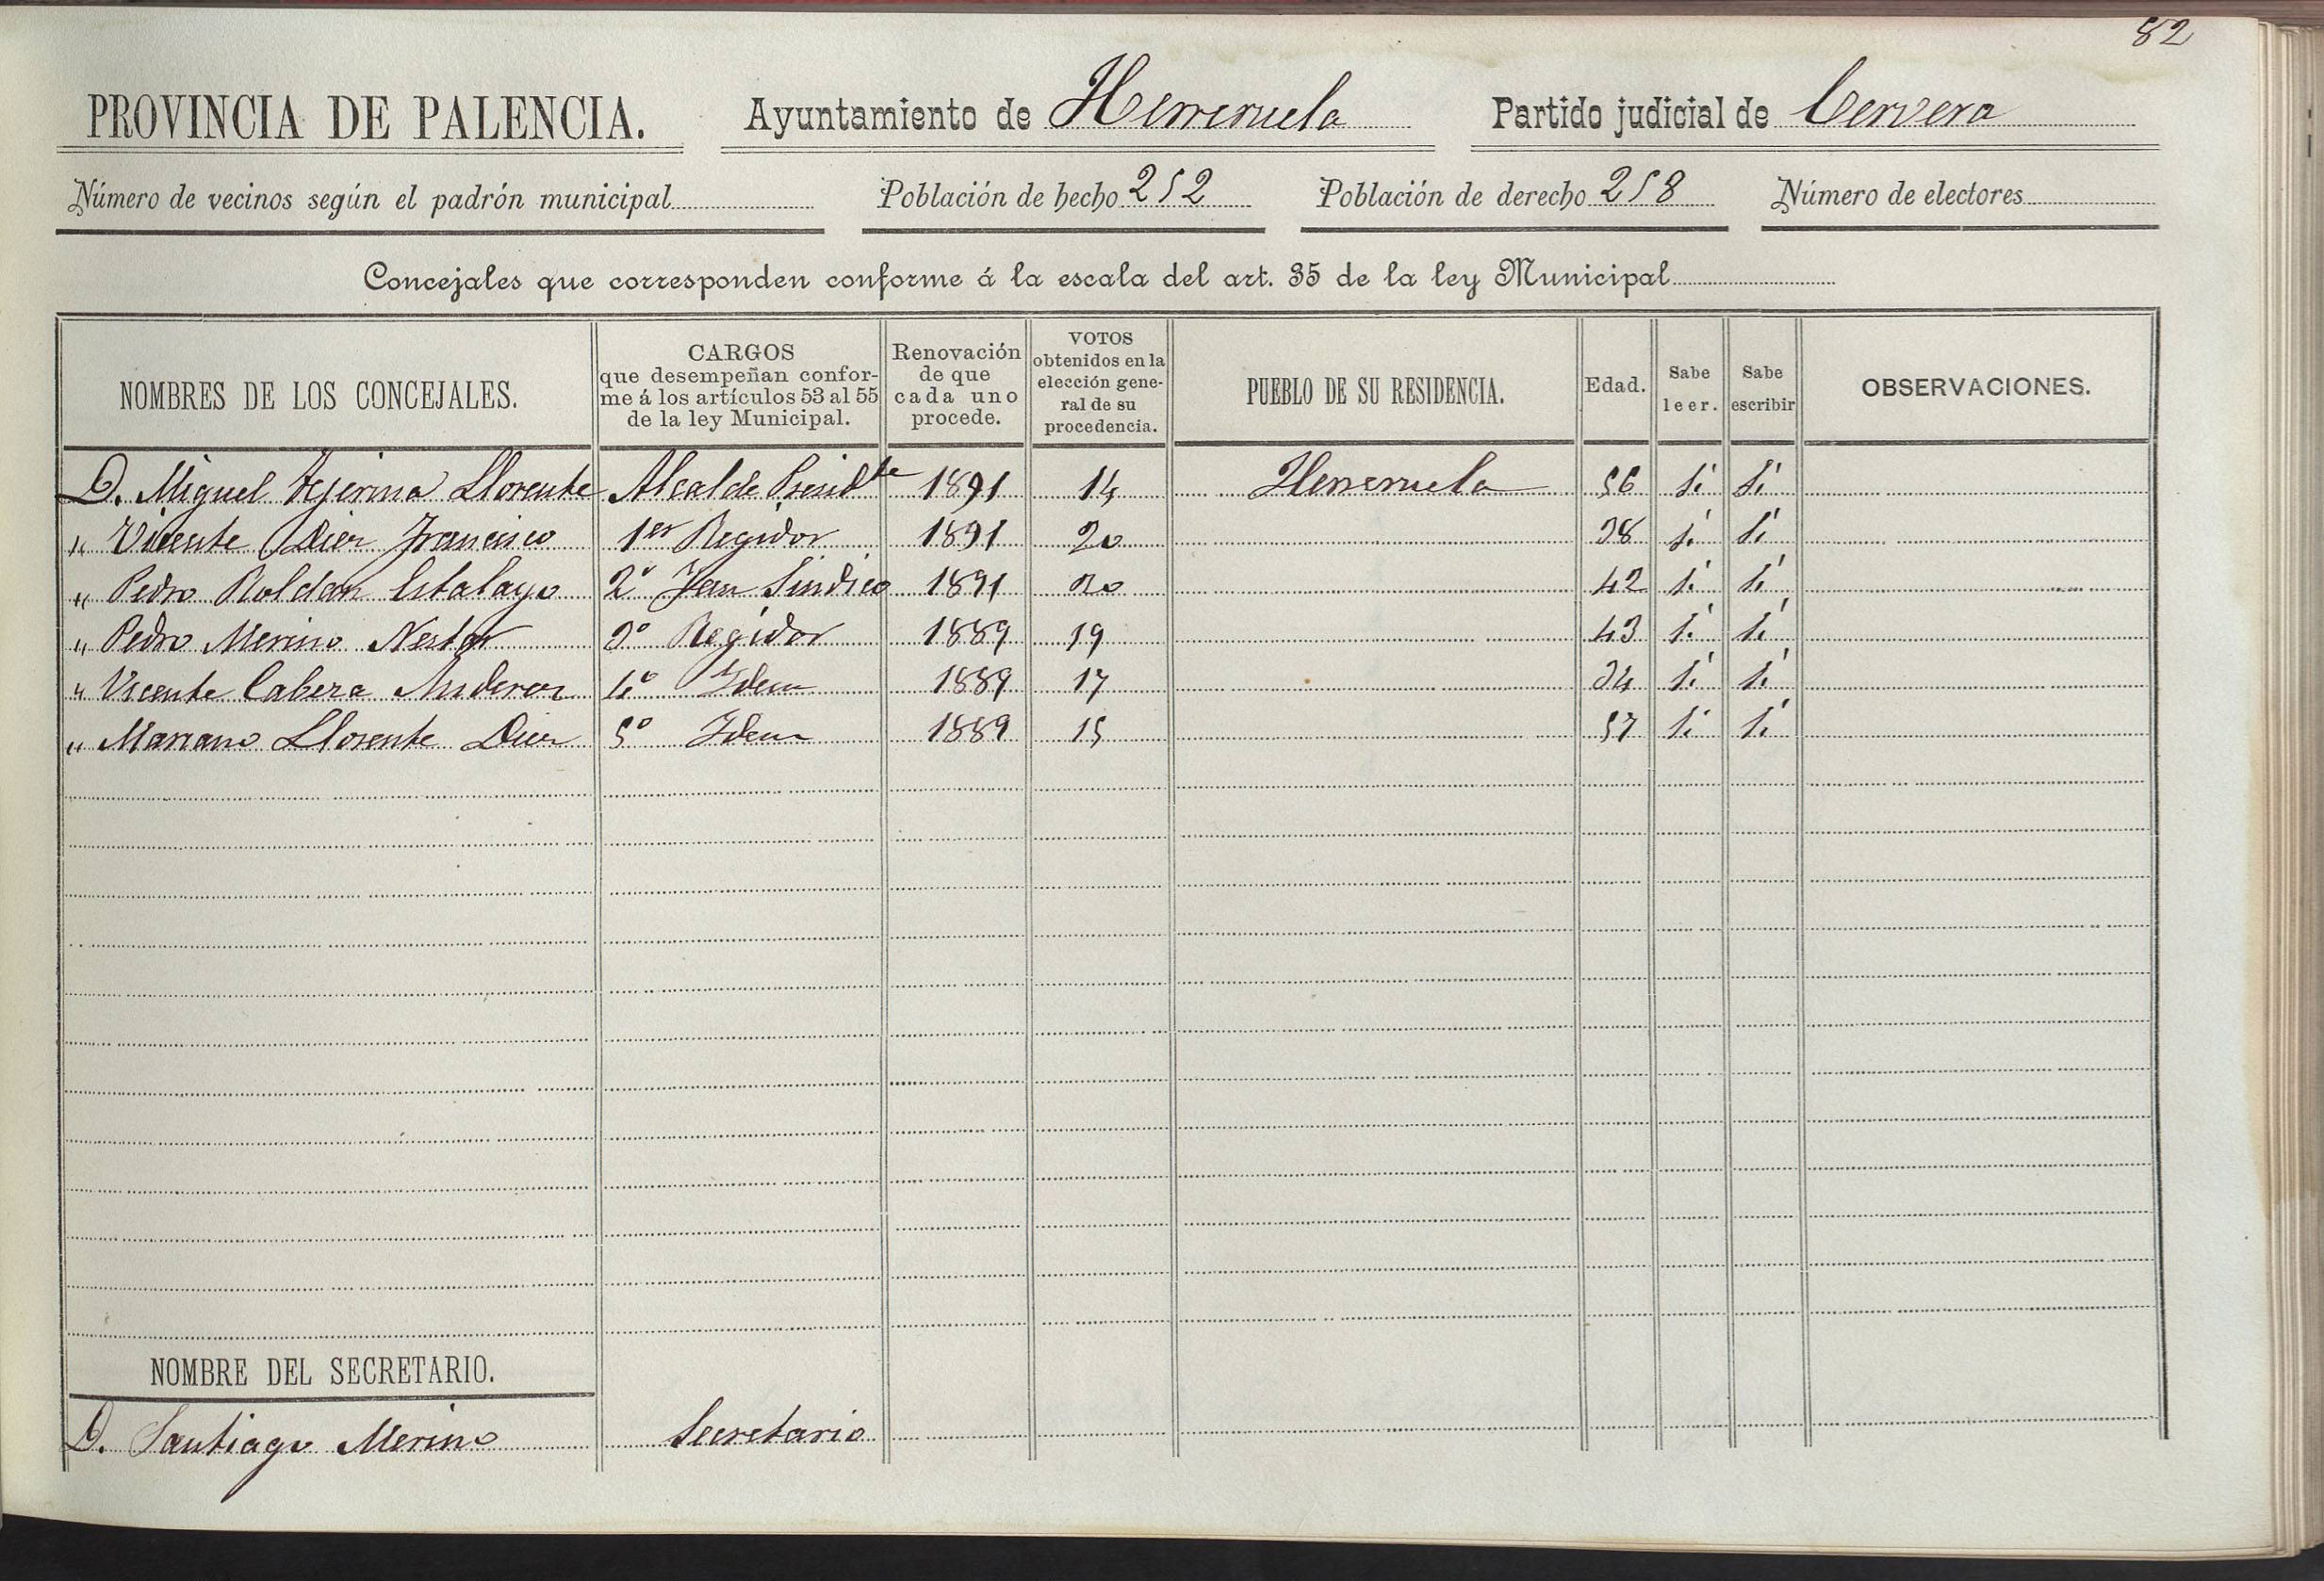 82
PROVINCIA DE PALENCIA. Ayuntamiento de Herreruela Partido judicial de Cervera
Número de vecinos según el padrón municipal Población de hecho 252 Población de derecho 258 Número de electores
Concejales que corresponden conforme á la escala del art. 35 de la ley Municipal
NOMBRES DE LOS CONCEJALES. CARGOS que desempeñan conforme á los artículos 53 al 55 de la ley Municipal. Renovación de que cada uno procede. VOTOS obtenidos en la elección general de su procedencia. PUEBLO DE SU RESIDENCIA. Edad. Sabe leer. Sabe escribir OBSERVACIONES.
D. Miguel Tejerina Llorente Alcalde Presidte 1891 14 Herreruela 56 Sí Sí
" Vicente Diez Francisco 1er Regidor 1891 20 38 Sí Sí
" Pedro Roldan Estalayo 2º Síndico 1891 20 42 Sí Sí
" Pedro Merino Nestar 3º Regidor 1889 19 43 Sí Sí
" Vicente Cabeza 4º Idem 1889 17 34 Sí Sí
" Mariano Llorente Diez 5º Idem 1889 15 57 Sí Sí
NOMBRE DEL SECRETARIO.
D. Santiago Merino Secretario